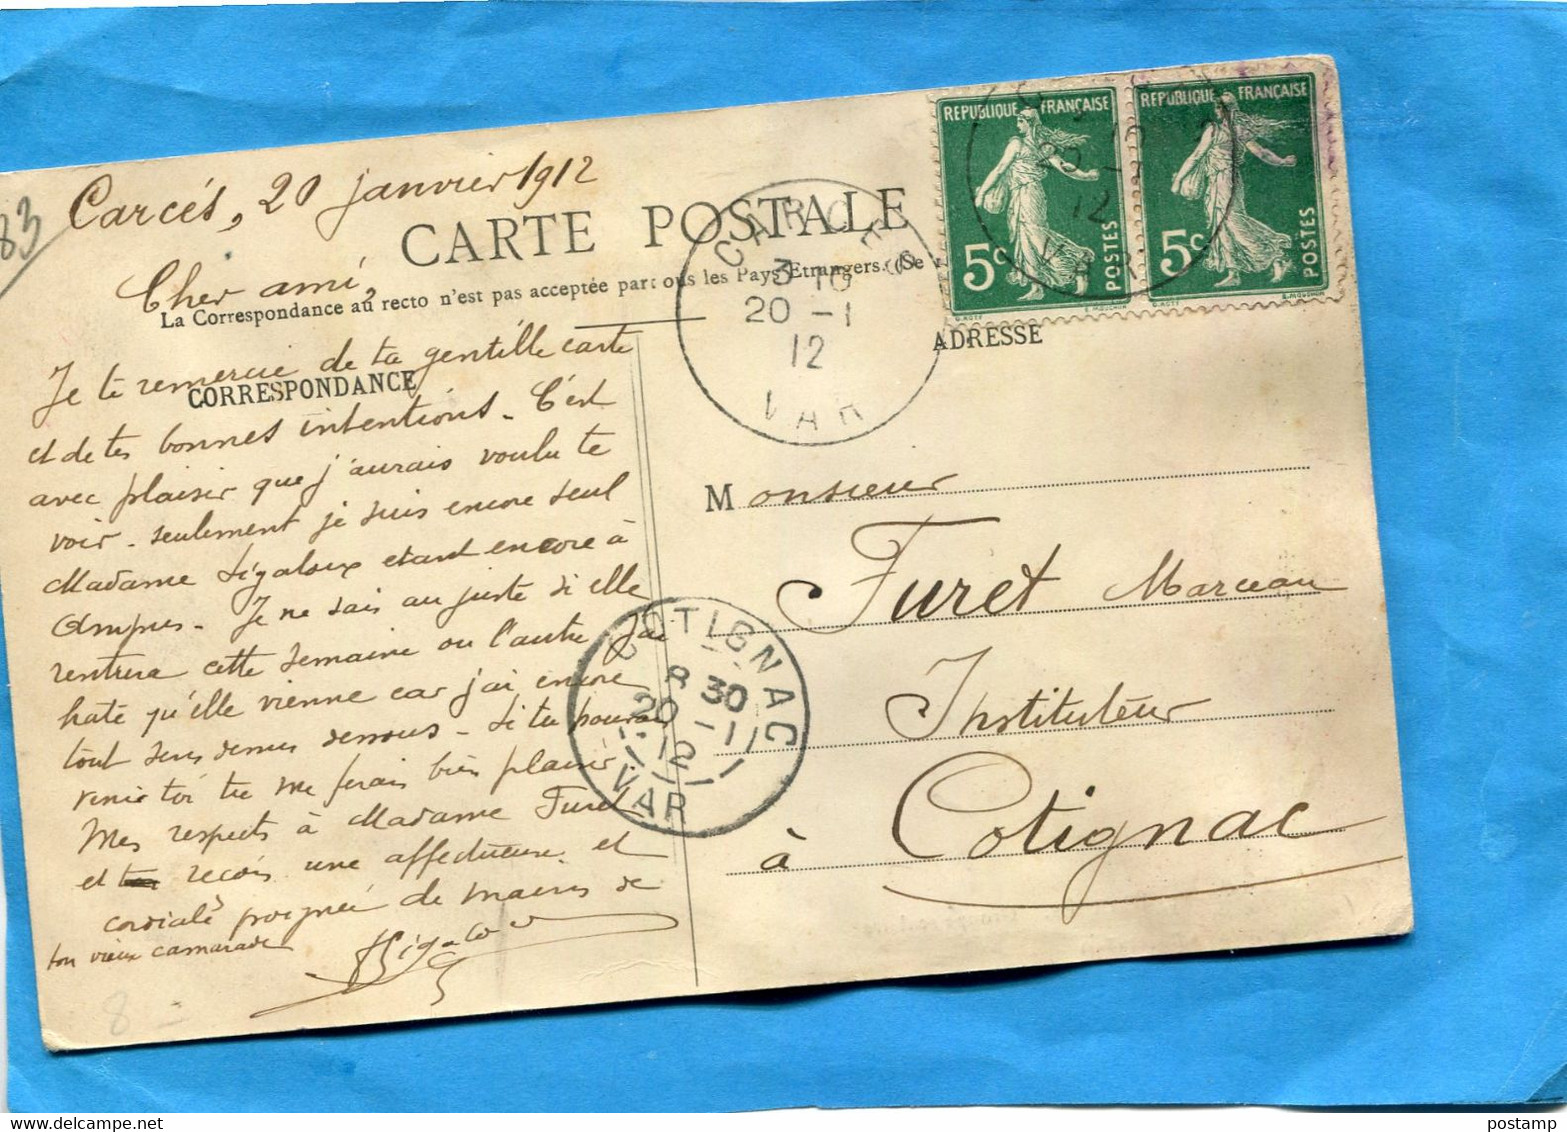 83
Carcés, 20 janvier 1912
CARTE POSTALE
Cher ami,
La Correspondance au recto n'est pas acceptée par tous les Pays Etrangers. (Se
CORRESPONDANCE
Je te remercie de ta gentille carte
et de tes bonnes intentions. C'est
avec plaisir que j'aurais voulu te
voir. seulement je suis encore seul
Madame Sigaloux etant encore à
Ampus. Je ne sais au juste si elle
rentrera cette semaine ou l'autre J'ai
hate qu'elle vienne car j'ai encore
tout sens dessus dessous. Si tu pouvais
venir toi tu me ferais bien plaisir.
Mes respects à Madame Furet
et recois une affectueuse et
cordiale poignée de mains de
ton vieux camarade
Sigaloux
8
REPUBLIQUE FRANÇAISE
5c
POSTES
O.ROTY
E.MOUCHON
REPUBLIQUE FRANÇAISE
5c
POSTES
O.ROTY
E.MOUCHON
20
12
VAR
CARCES
3 10
20 -1
12
VAR
ADRESSE
Monsieur
Furet Marceau
Instituteur
à Cotignac
COTIGNAC
8 30
20 -1
12
VAR
postamp